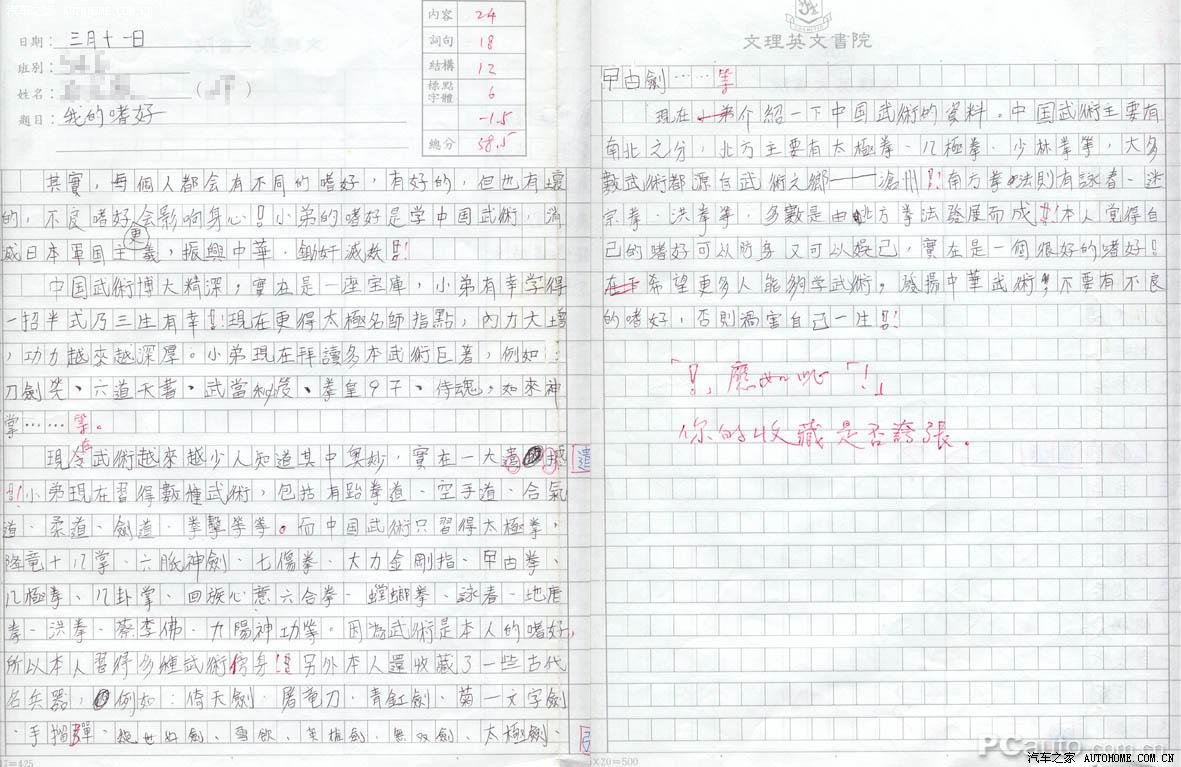 汽车之家 AUTOHOME.COM.CN
日期： 三月十一日
班別：
：（ ）
題目： 我的嗜好
內容 24
詞句 18
結構 12
標點字體 6
-1.5
總分 58.5
其實，每個人都会有不同的嗜好，有好的，但也有壞
的，不良嗜好更会影响身心！小弟的嗜好是学中国武術，消
滅日本軍国主義，振興中華．鋤奸滅敵！
中国武術博大精深，實在是一座宝庫，小弟有幸学得
一招半式乃三生有幸！現在更得太極名師指點，內力大增
，功力越來越深厚。小弟現在拜讀多本武術巨著，例如：
刀劍笑、六道天書、武當秘笈、拳皇97、侍魂，如來神
掌……等。
現今武術越來越少人知道其中奧妙，實在一大遺憾
！小弟現在習得數種武術，包括有跆拳道、空手道、合氣
道、柔道、劍道、拳擊拳等。而中国武術只習得太極拳，
降竜十八掌、六脈神劍、七傷拳、大力金剛指、甲由拳、
八極拳、八卦掌、回族心意六合拳、螳螂拳、詠春、地度
拳、洪拳、蔡李佛、九陽神功等。因為武術是本人的嗜好，
所以本人習得多種武術傍身！另外本人還收藏了一些古代
名兵器，例如：倚天劍、屠竜刀、青釭劍、菊一文字劍
、手榴彈、雪飲、無双劍、太極劍、
遺
17=425
文理英文書院
甲由劍……等
現在小弟介紹一下中国武術的資料。中国武術主要有
南北之分，北方主要有太極拳、八極拳、少林拳等，大多
數武術都源自武術之鄉——滄州！南方拳法則有詠春、迷
宗拳、洪拳等，多數是由北方拳法發展而成！本人覺得自
己的嗜好可以防身又可以娛己，實在是一個很好的嗜好！
希望更多人能夠学武術，發揚中華武術，不要有不良
的嗜好，否則禍害自己一生！
「！」應如此「！」
你的收藏是否誇張．
X20=500
PCauto.com.cn
汽车之家 AUTOHOME.COM.CN